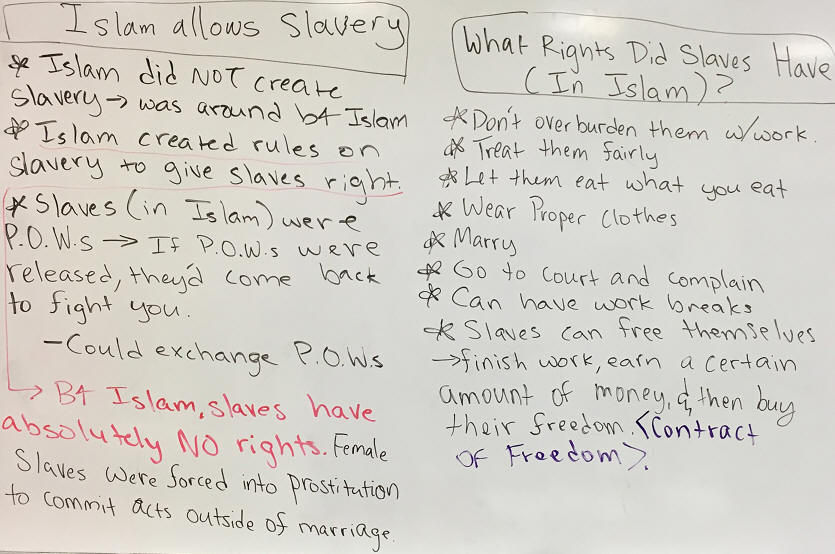 Islam allows Slavery
* Islam did NOT create
slavery → was around b4 Islam
* Islam created rules on
slavery to give slaves right.
* Slaves (in Islam) were
P.O.W.s → If P.O.W.s were
released, they'd come back
to fight you.
- Could exchange P.O.W.s
→ B4 Islam, slaves have
absolutely NO rights. Female
Slaves were forced into prostitution
to commit acts outside of marriage.
What Rights Did Slaves Have
(In Islam)?
* Don't overburden them w/work.
* Treat them fairly
* Let them eat what you eat
* Wear Proper Clothes
* Marry
* Go to court and complain
* Can have work breaks
* Slaves can free themselves
→ finish work, earn a certain
amount of money, & then buy
their freedom. <Contract
of Freedom>.